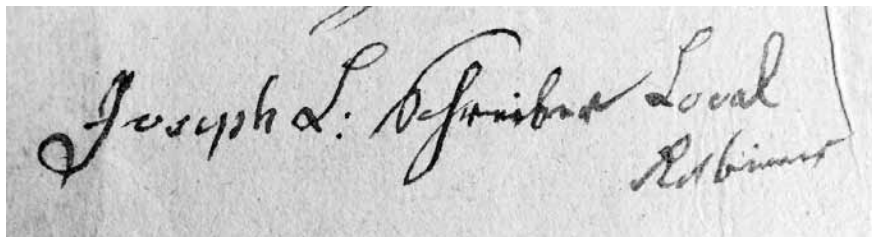 Joseph L: Schreiber Local
Rabbiner